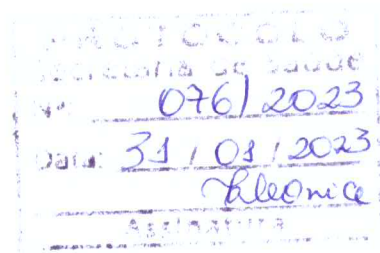 PROTOCOLO
Secretaria de Saúde
Nº 076/2023
Data: 31/01/2023
Assinatura